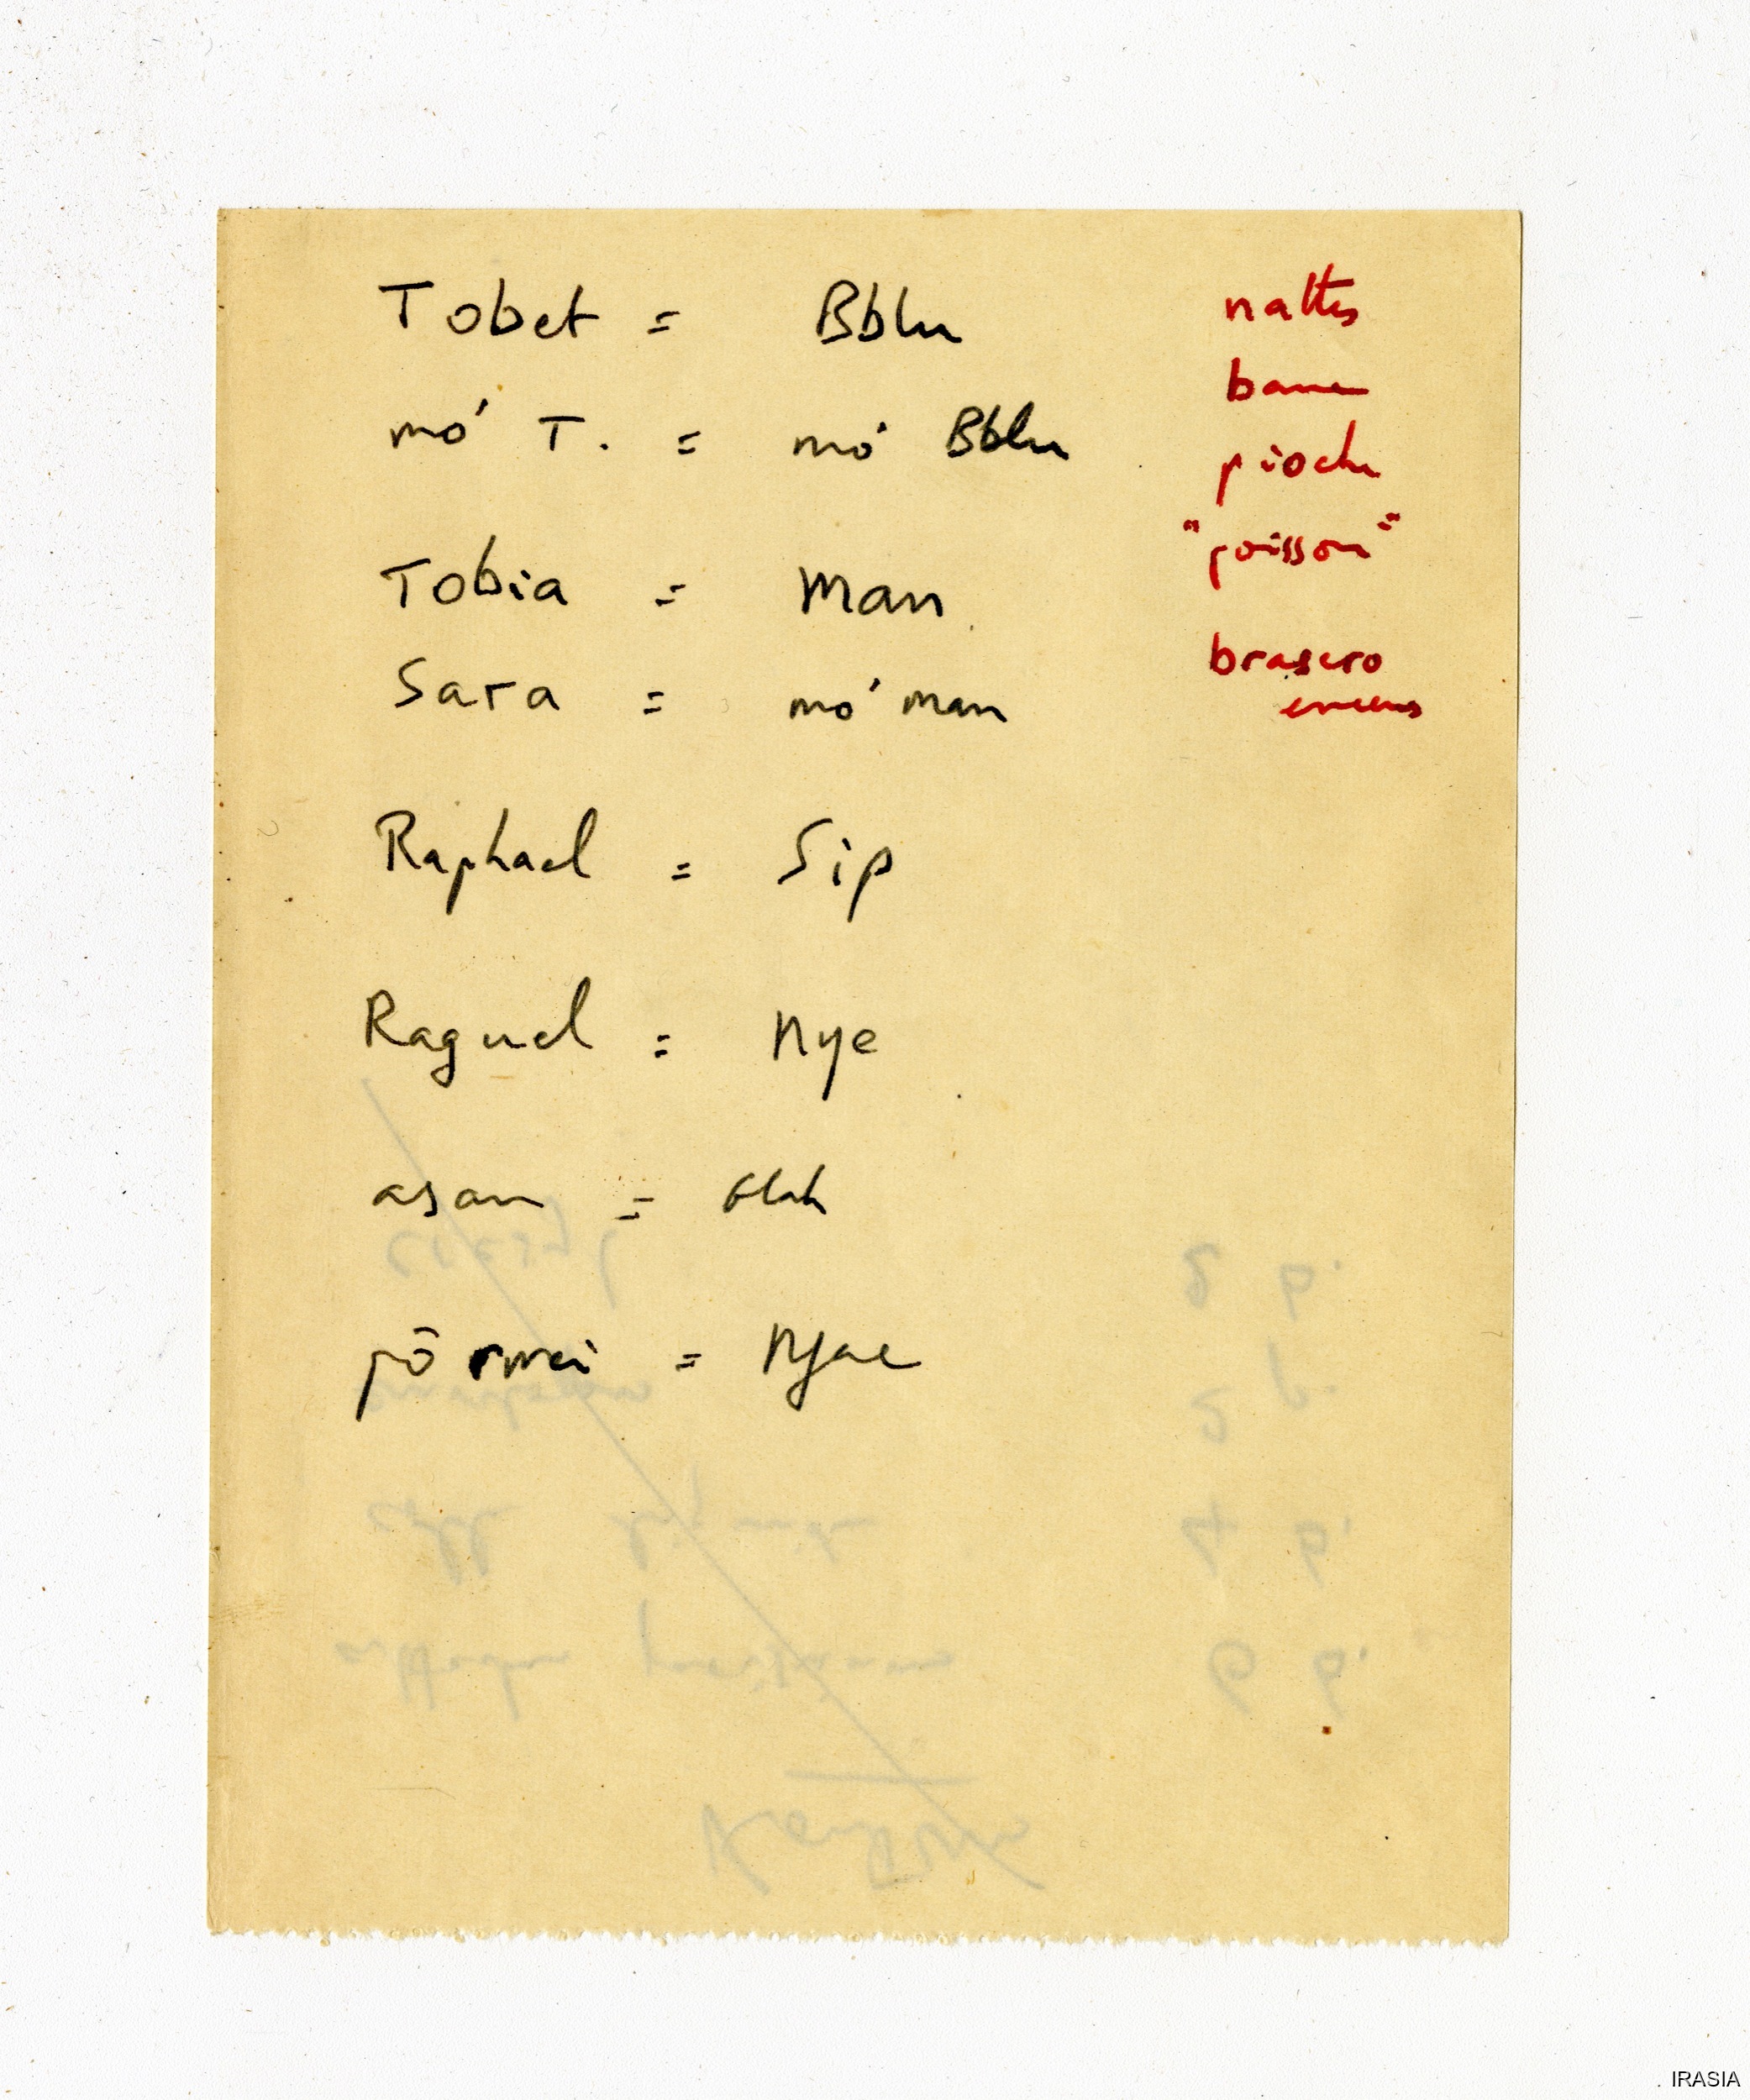 Tobet = Bblu
mó T. = mó Bblu
Tobia = Man
Sara = mó man
Raphael = Sip
Raguel = Nye
asan =
= Nyae
nattes
pioche
"poisson"
brasero
encens
IRASIA